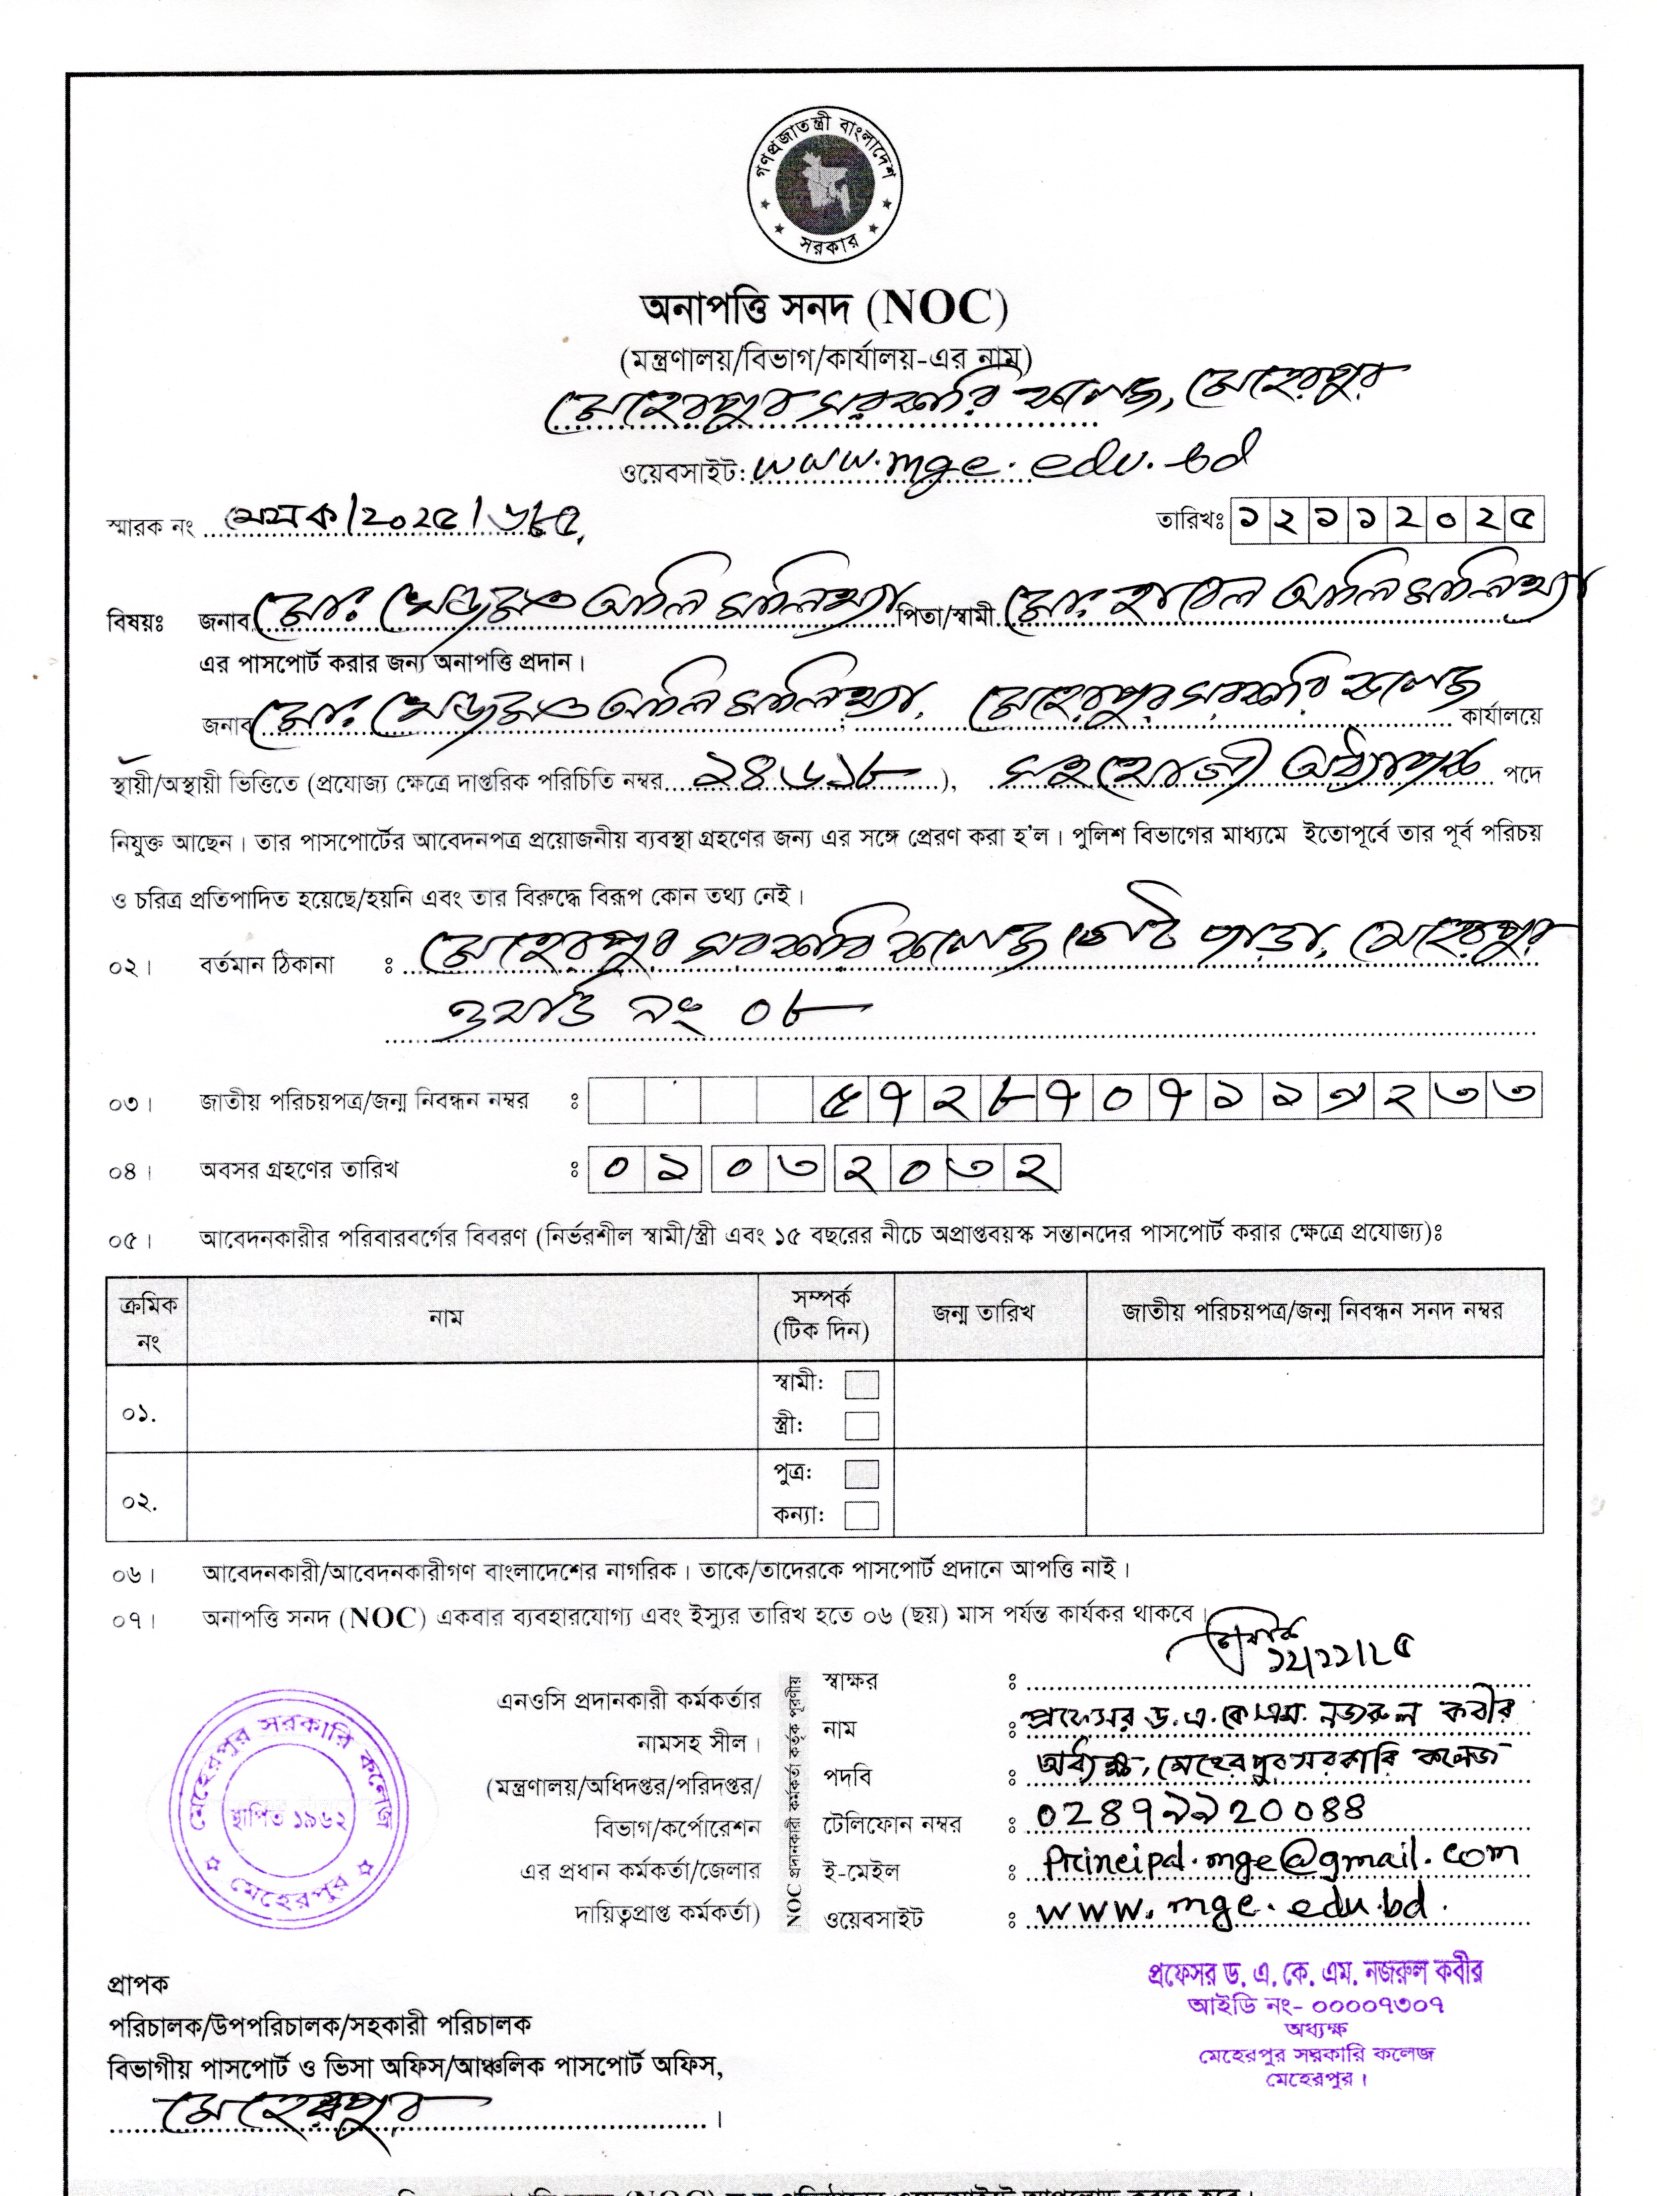 গণপ্রজাতন্ত্রী বাংলাদেশ সরকার
অনাপত্তি সনদ (NOC)
(মন্ত্রণালয়/বিভাগ/কার্যালয়-এর নাম)
মেহেরপুর সরকারি কলেজ, মেহেরপুর
ওয়েবসাইট: www.mgc.edu.bd
স্মারক নং মেসক/২০২৫/৬৮৫ তারিখঃ ১২১১২০২৫
বিষয়ঃ জনাব মো: খেজমত আলি মালিথ্যা পিতা/স্বামী মো: হাবেল আলি মালিথ্যা
এর পাসপোর্ট করার জন্য অনাপত্তি প্রদান।
জনাব মো: খেজমত আলি মালিথ্যা, মেহেরপুর সরকারি কলেজ কার্যালয়ে
স্থায়ী/অস্থায়ী ভিত্তিতে (প্রযোজ্য ক্ষেত্রে দাপ্তরিক পরিচিতি নম্বর ২৪৬১৮), সহযোগী অধ্যাপক পদে
নিযুক্ত আছেন। তার পাসপোর্টের আবেদনপত্র প্রয়োজনীয় ব্যবস্থা গ্রহণের জন্য এর সঙ্গে প্রেরণ করা হ'ল। পুলিশ বিভাগের মাধ্যমে ইতোপূর্বে তার পূর্ব পরিচয়
ও চরিত্র প্রতিপাদিত হয়েছে/হয়নি এবং তার বিরুদ্ধে বিরূপ কোন তথ্য নেই।
০২। বর্তমান ঠিকানা ঃ মেহেরপুর সরকারি কলেজ গেট পাড়া, মেহেরপুর
ওয়ার্ড নং ০৮
০৩। জাতীয় পরিচয়পত্র/জন্ম নিবন্ধন নম্বর ঃ ৫৭২৮৭০৭১১৯২৩৩
০৪। অবসর গ্রহণের তারিখ ঃ ০১০৩২০৩২
০৫। আবেদনকারীর পরিবারবর্গের বিবরণ (নির্ভরশীল স্বামী/স্ত্রী এবং ১৫ বছরের নীচে অপ্রাপ্তবয়স্ক সন্তানদের পাসপোর্ট করার ক্ষেত্রে প্রযোজ্য)ঃ
ক্রমিক নং নাম সম্পর্ক (টিক দিন) জন্ম তারিখ জাতীয় পরিচয়পত্র/জন্ম নিবন্ধন সনদ নম্বর
০১. স্বামী:
স্ত্রী:
০২. পুত্র:
কন্যা:
০৬। আবেদনকারী/আবেদনকারীগণ বাংলাদেশের নাগরিক। তাকে/তাদেরকে পাসপোর্ট প্রদানে আপত্তি নাই।
০৭। অনাপত্তি সনদ (NOC) একবার ব্যবহারযোগ্য এবং ইস্যুর তারিখ হতে ০৬ (ছয়) মাস পর্যন্ত কার্যকর থাকবে।
১২/১১/২৫
এনওসি প্রদানকারী কর্মকর্তার
নামসহ সীল।
(মন্ত্রণালয়/অধিদপ্তর/পরিদপ্তর/
বিভাগ/কর্পোরেশন
এর প্রধান কর্মকর্তা/জেলার
দায়িত্বপ্রাপ্ত কর্মকর্তা)
NOC প্রদানকারী কর্মকর্তা কর্তৃক পূরণীয়
স্বাক্ষর ঃ
নাম ঃ প্রফেসর ড. এ. কে. এম. নজরুল কবীর
পদবি ঃ অধ্যক্ষ, মেহেরপুর সরকারি কলেজ
টেলিফোন নম্বর ঃ 02৪৭৯৯20০৪৪
ই-মেইল ঃ Principal.mgc@gmail.com
ওয়েবসাইট ঃ www.mgc.edu.bd.
মেহেরপুর সরকারি কলেজ
স্থাপিত ১৯৬২
মেহেরপুর
প্রফেসর ড. এ. কে. এম. নজরুল কবীর
আইডি নং- ০০০০৭৩০৭
অধ্যক্ষ
মেহেরপুর সরকারি কলেজ
মেহেরপুর।
প্রাপক
পরিচালক/উপপরিচালক/সহকারী পরিচালক
বিভাগীয় পাসপোর্ট ও ভিসা অফিস/আঞ্চলিক পাসপোর্ট অফিস,
মেহেরপুর।